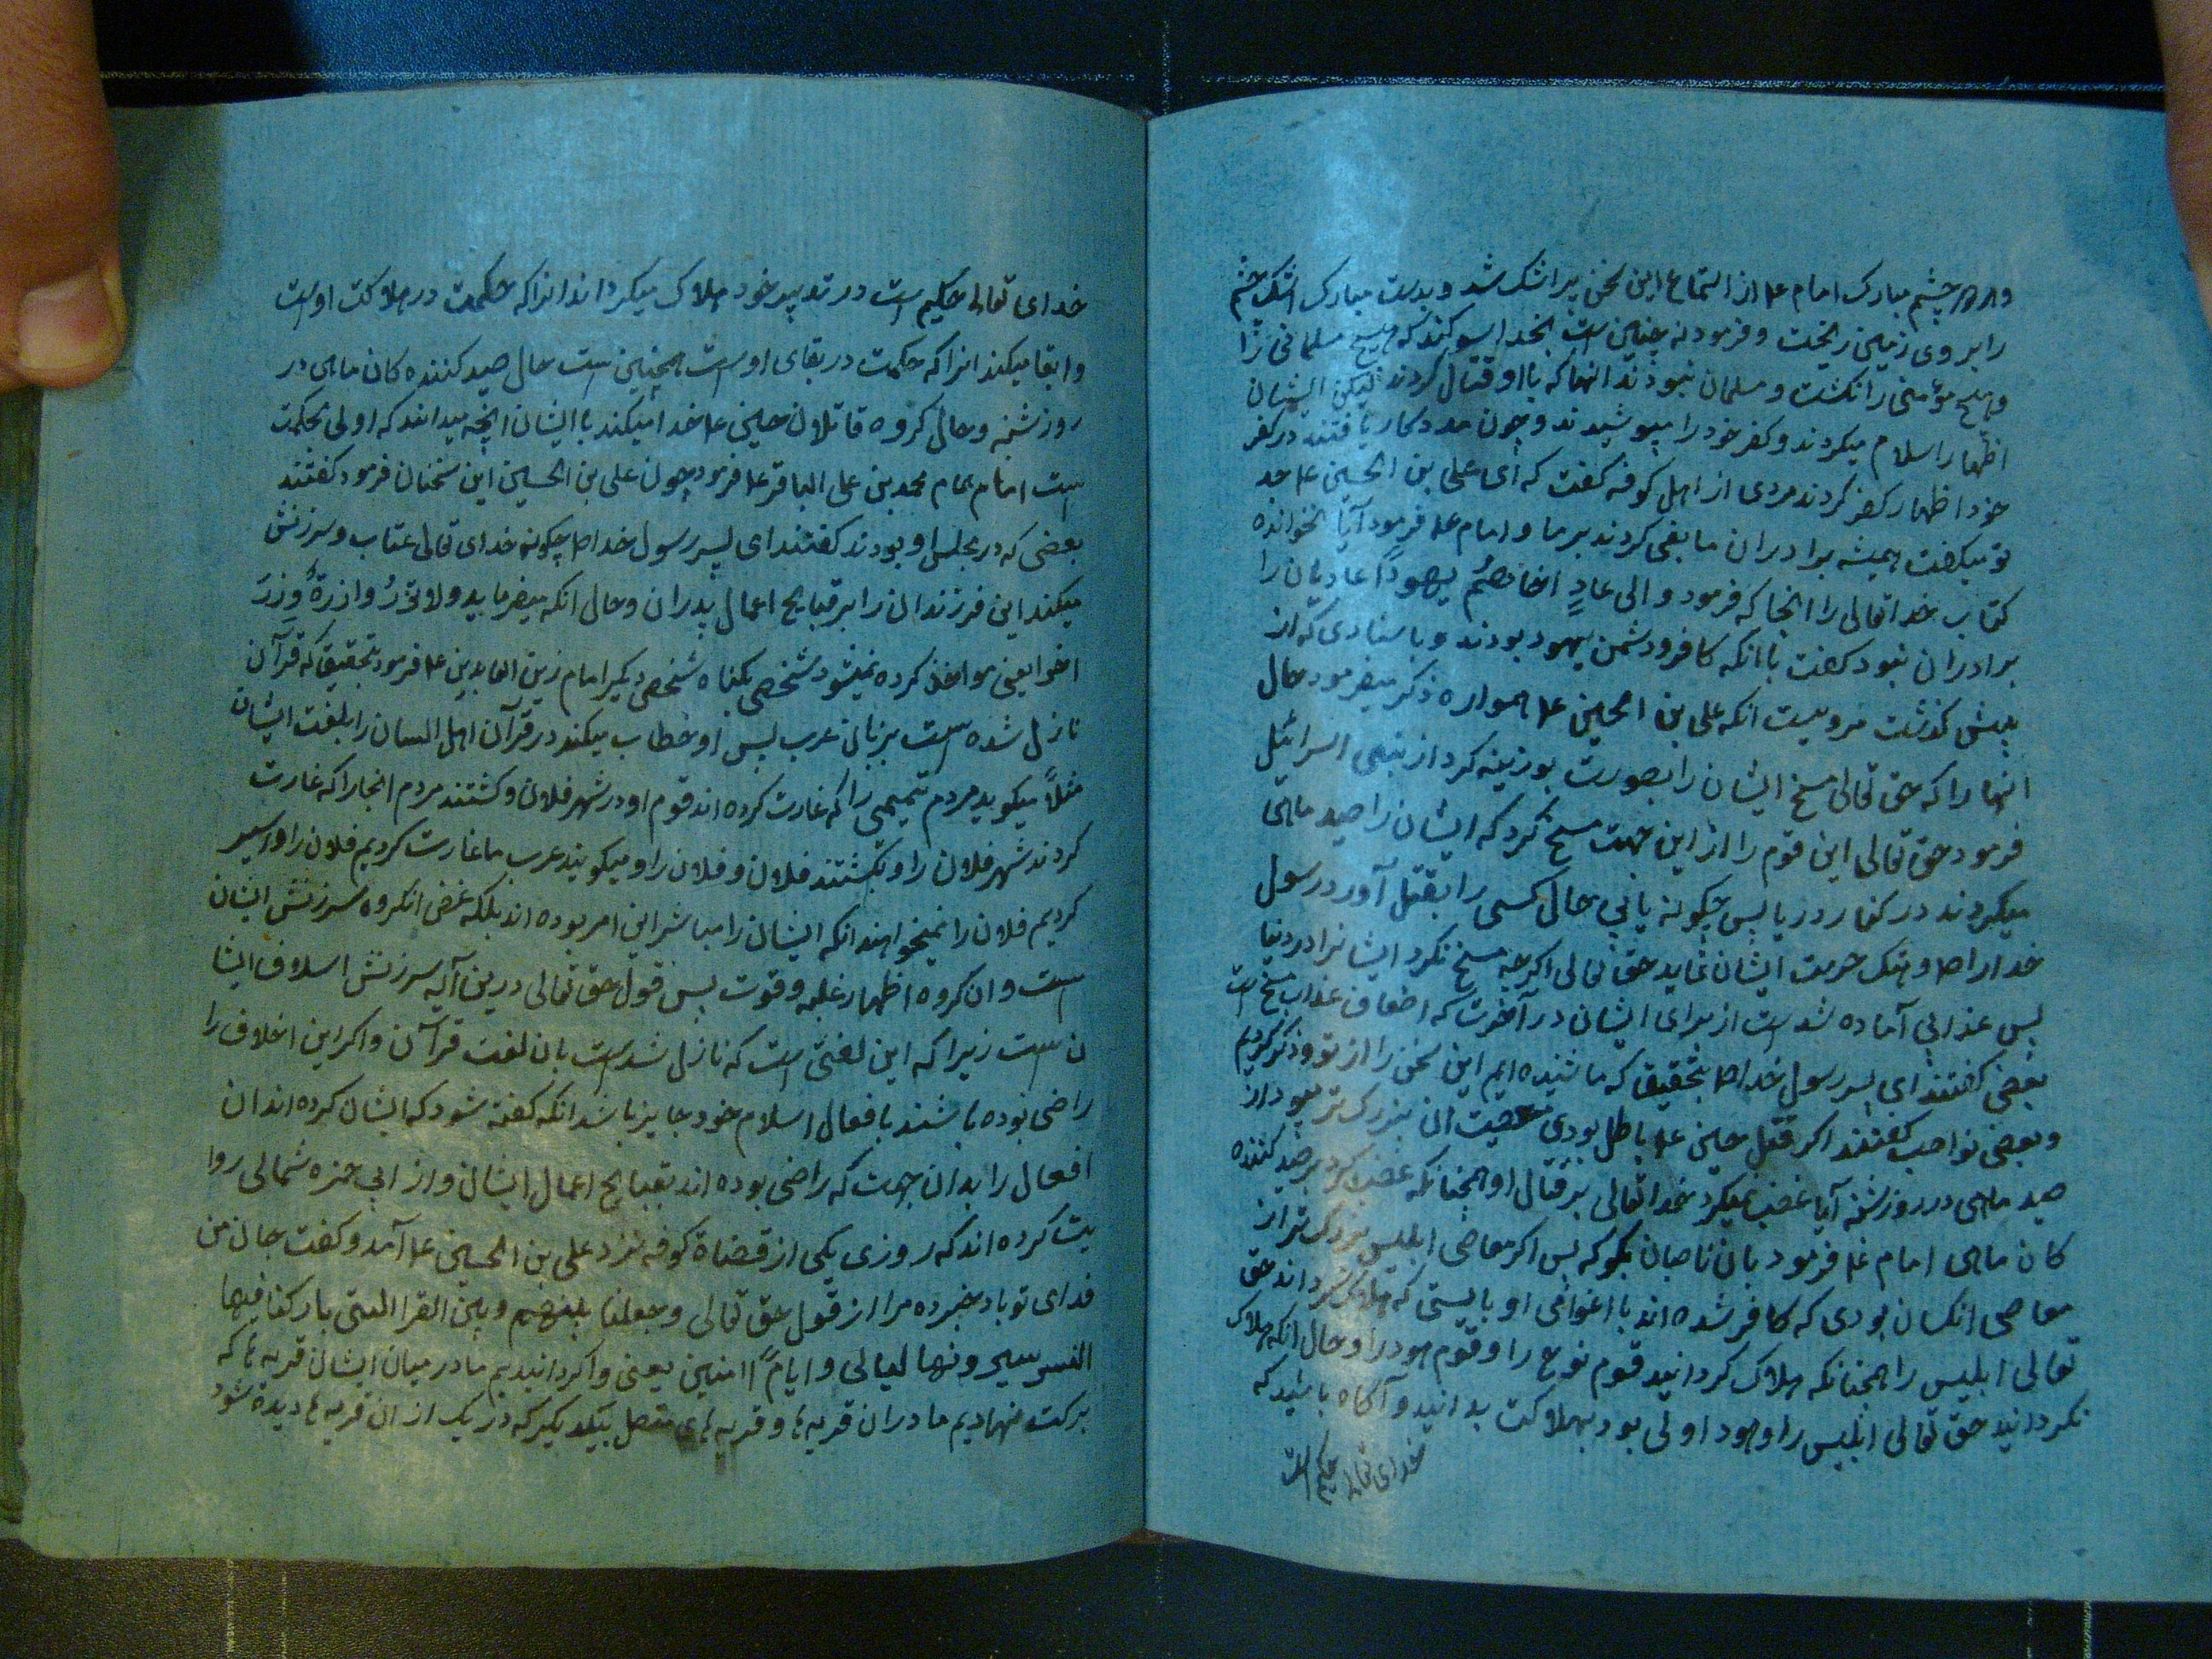 و هر دو چشم مبارک امام ع از استماع این سخن پر اشک شد و بدست مبارک اشک چشم
را بر وی زمین ریخت و فرمود نه چنین است بخدا سوکند که هیچ مسلمانی را
و هیچ مؤمنی را نکشت و مسلمان نبودند انها که با او قتال کردند لیکن ایشان
اظهار اسلام میکردند و کفر خود را میپوشیدند و چون مددکار یافتند در کفر
خود اظهار کفر کردند مردی از اهل کوفه کفت که ای علی بن الحسین ع جد
تو میکفت همیشه برادران ما بغی کردند بر ما و امام ع فرمود آیا نخوانده
کتاب خدا تعالی را انجا که فرمود و الی عادٍ اخاهم هوداً عادیان را
برادران نبود کفت با انکه کافر و دشمن هود بودند و باسنادی که از
پیش کذشت مرویست انکه علی بن الحسین ع همواره ذکر میفرمود حال
انها را که حق تعالی مسخ ایشان را بصورت بوزینه کرد از بنی اسرائیل
فرمود حق تعالی این قوم را از این جهت مسخ کرد که ایشان را صید ماهی
میکردند در کنار دریا پس چکونه یابی حال کسی را بقتل آورد رسول
خدا را ص و هتک حرمت ایشان نماید حق تعالی اکرچه مسخ نکرد ایشانرا در دنیا
پس عذابی آماده شد است از برای ایشان در آخرت که اضعاف عذاب مسخ است
بعضی کفتند ای پسر رسول خدا ص بتحقیق که ما شنیده ایم این سخن را از تو و ذکر کردیم
و بعضی نواصب کفتند اکر قتل حسین ع باطل بودی معصیت ان بزرک تر میبود از
صید ماهی در روز شنبه آیا غضب نمیکرد خدا تعالی بر قتال او همچنانکه غضب کرد بر صید کننده
کان ماهی امام ع فرمود بان ناصبان بکو که پس اکر معاصی ابلیس بزرک تر از
معاصی انکسان بودی که کافر شده اند با اغوای او بایستی که هلاک کرداند حق
تعالی ابلیس را همچنانکه هلاک کردانید قوم نوع را و قوم هود را و حال انکه هلاک
نکردانید حق تعالی ابلیس را و هود اولی بود بهلاکت بدانید و آکاه باشید که
خدای تعالی حکیم است
خدای تعالی حکیم است در تدبیر خود هلاک میکرداند انرا که حکمت در هلاکت اوست
و ابقا میکند انرا که حکمت در بقای اوست همچنین است حال صید کننده کان ماهی در
روز شنبه و حال کروه قاتلان حسین ع خدا میکند با ایشان انچه میداند که اولی بحکمت
است امام همام محمد بن علی الباقر ع فرمود چون علی بن الحسین این سخنان فرمود کفتند
بعضی که در مجلس او بودند کفتند ای پسر رسول خدا ص چکونه خدای تعالی عتاب و سرزنش
میکند این فرزندان را بر قبایح اعمال پدران و حال انکه میفرماید و لا تزرُ وازرةٌ وِزرَ
اخرا یعنی مواخذ کرده نمیشود شخصی بکناه شخصی دیکیر امام زین العابدین ع فرمود بتحقیق که قرآن
نازل شده است بزبان عرب پس او خطاب میکند در قرآن اهل لسان را بلغت ایشان
مثلاً میکوید مردم تمیمی را که غارت کرده اند قوم او در شهر فلان و کشتند مردم انجا را که غارت
کردند شهر فلان را و بکشتند فلان و فلان را و میکویند عرب ما غارت کردیم فلان را و اسیر
کردیم فلان را نمیخواهند انکه ایشان را مباشر این امر بوده اند بلکه غضی انکروه سرزنش ایشان
است و ان کروه اظهار غلبه و قوت پس قول حق تعالی درین آیه سرزنش اسلاف ایشا
ن است زیرا که این لغتی است که نازل شد است بان لغت قرآن و اکر این اخلاف را
راضی بوده باشند بافعال اسلام خود جایز باشد انکه کفته شود که ایشان کرده اند ان
افعال را بدان جهت که راضی بوده اند بقبایح اعمال ایشان و از ابی حمزه شمالی روا
یت کرده اند که روزی یکی از قضاة کوفه نزد علی بن الحسین ع آمد و کفت جان من
فدای تو باد خبر ده مرا از قول حق تعالی و جعلنا بینهم و بین القرا التی بارکنا فیها
السیر سیرو فیها لیالی و ایاماً امنین یعنی و اکردانیدیم ما در میان ایشان قریه ها که
برکت نهادیم ما در ان قریه ها و قریه های متصل بیکدیکیر که در یک از ان قریه ها دیده شود